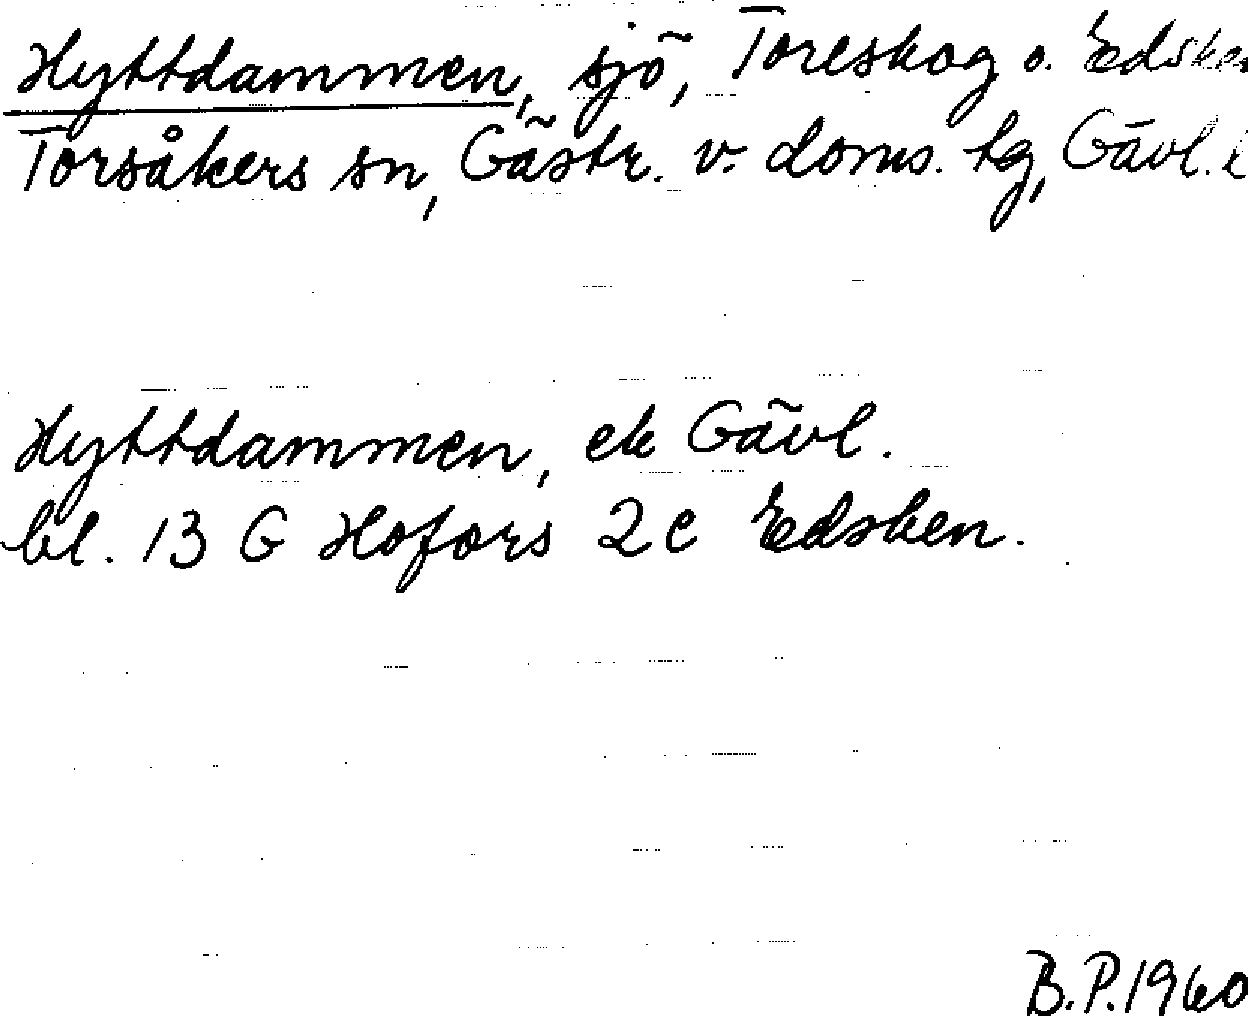 Hyttdammen, sjö, Toreskog o. Edsken
Torsåkers sn, Gästr. v. doms. tg, Gävl. l
Hyttdammen, ek Gävl.
bl. 13 G Hofors 2c Edsken.
B.P. 1960